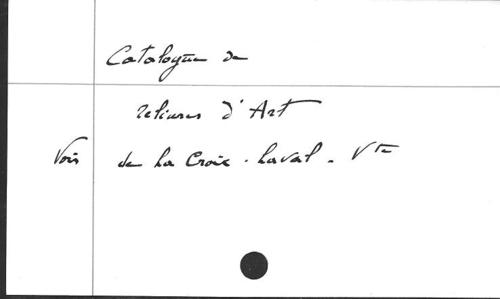 Catalogue de
reliures d'Art
Voir de La Croix - Laval - Vte